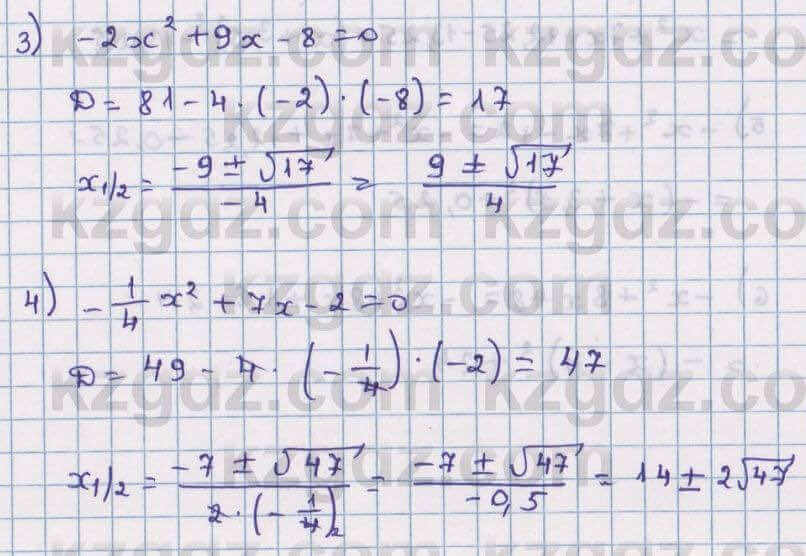 3) -2x² + 9x - 8 = 0
D = 81 - 4 · (-2) · (-8) = 17
x₁/₂ = (-9 ± √17)/(-4) = (9 ± √17)/4
4) -1/4 x² + 7x - 2 = 0
D = 49 - 4 · (-1/4) · (-2) = 47
x₁/₂ = (-7 ± √47)/(2 · (-1/4)) = (-7 ± √47)/(-0,5) = 14 ± 2√47
kzgdz.com